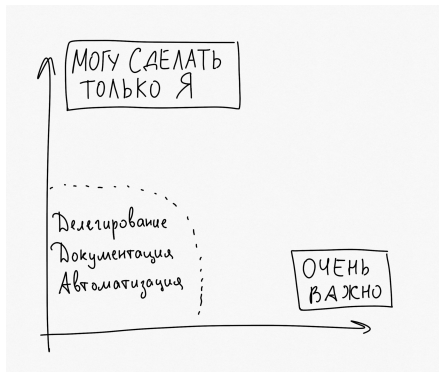 МОГУ СДЕЛАТЬ
ТОЛЬКО Я
Делегирование
Документация
Автоматизация
ОЧЕНЬ
ВАЖНО